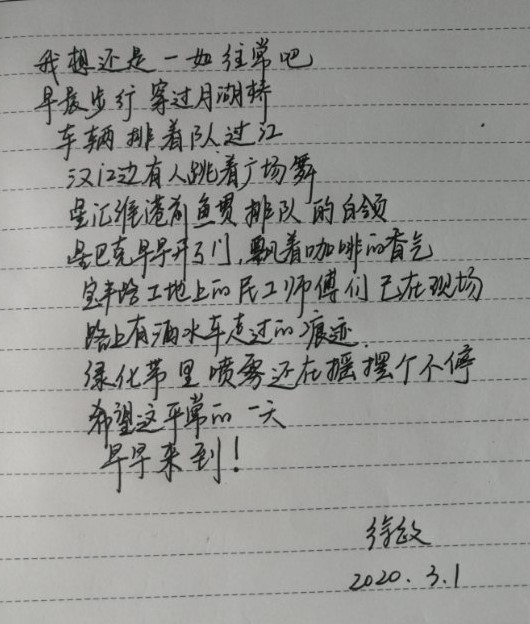 我想还是一如往常吧
早晨步行穿过月湖桥
车辆排着队过江
汉江边有人跳着广场舞
星汇维港前鱼贯排队的白领
星巴克早早开了门,飘着咖啡的香气
宝丰路工地上的民工师傅们已在现场
路上有洒水车走过的痕迹.
绿化带里喷雾还在摇摆个不停
希望这平常的一天
早早来到!
徐
2020.3.1